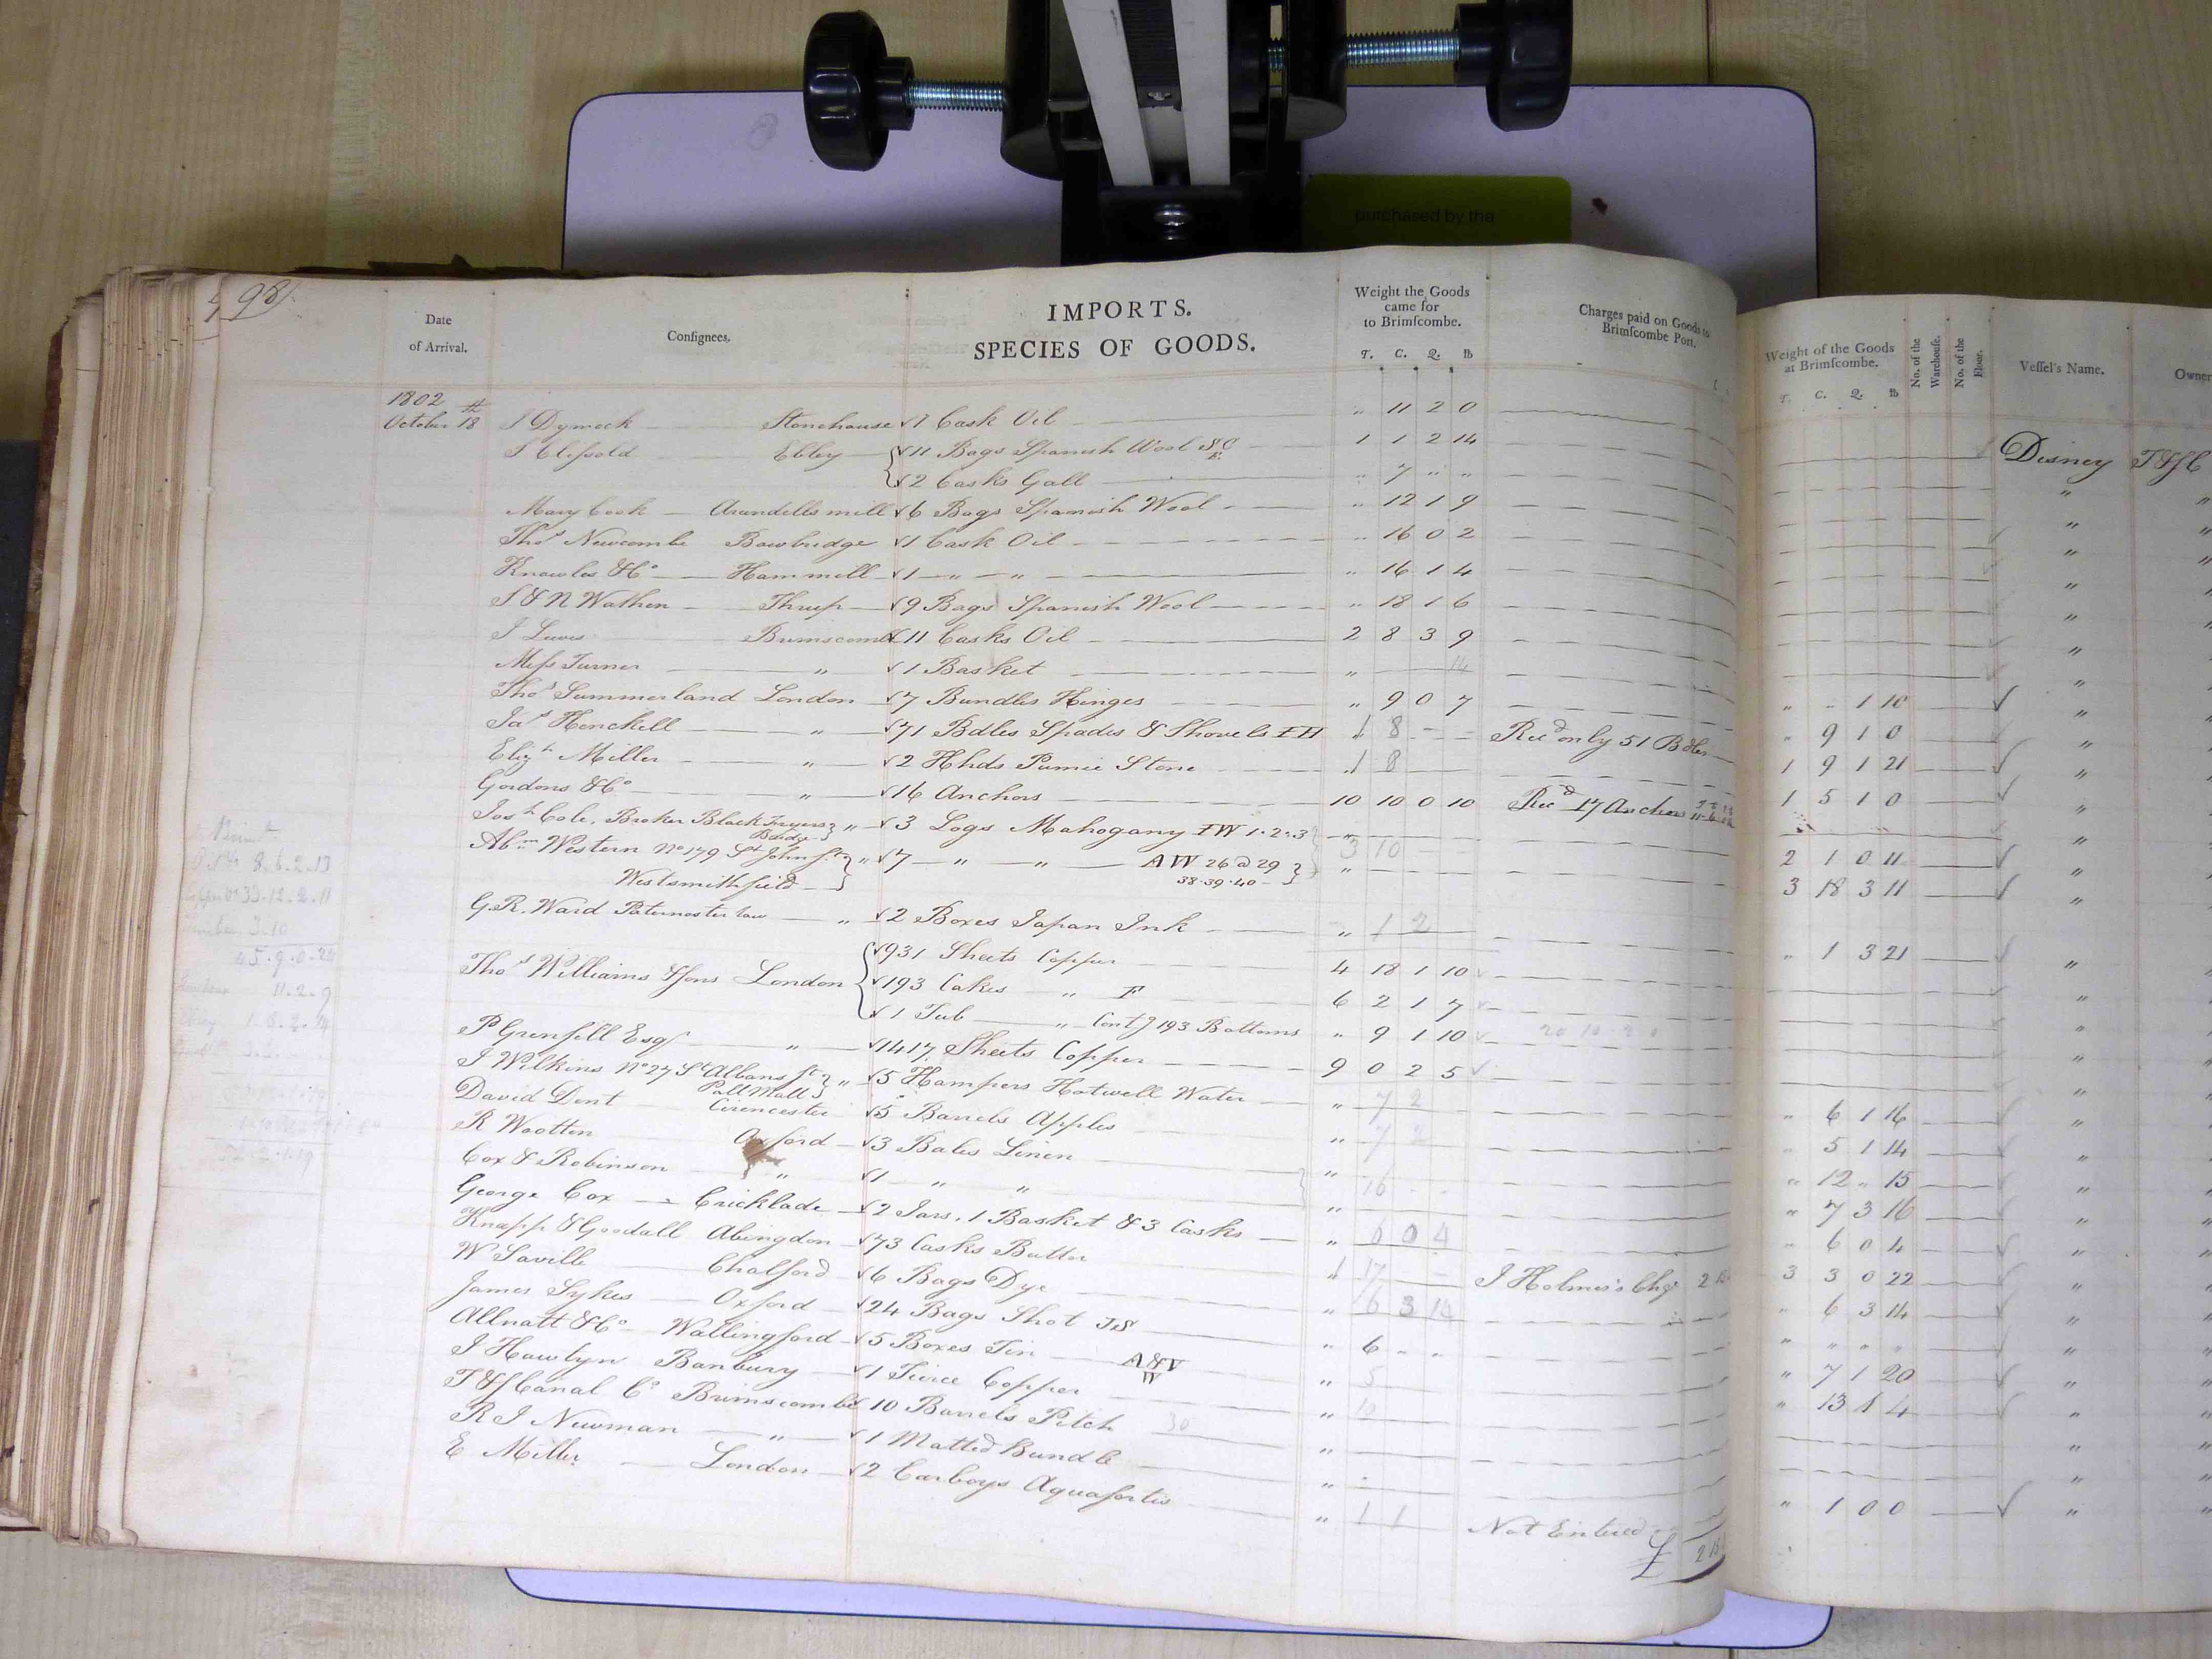 purchased by the
98
Date
of Arrival.
Consignees.
IMPORTS.
SPECIES OF GOODS.
Weight the Goods
came for
to Brimscombe.
T. C. Q. lb
Charges paid on Goods to
Brimscombe Port.
Weight of the Goods
at Brimscombe.
T. C. Q. lb
No. of the
Warehouse.
No. of the
Floor.
Vessel's Name.
Owner
1802
October 18th S Dymock Stonehouse 1 Cask Oil " 11 2 0
S Clissold Ebley 11 Bags Spanish Wool SC E. 1 1 2 14 Disney T&S C
2 Casks Gall " 7 " "
Mary Cook Arundells mill 6 Bags Spanish Wool " 12 1 9
Thos Newcombe Bowbridge 1 Cask Oil " 16 0 2
Knowles & Co Hammill 1 " " " 16 1 4
S & N Wathen Thrup 9 Bags Spanish Wool " 18 1 6
J Lewis Brimscomb 11 Casks Oil 2 8 3 9
Miss Turner " 1 Basket " 14
Thos Summerland London 7 Bundles Hinges " 9 0 7 " " 1 10
Jas Henckell " 71 Bdles Spades & Shovels IH 1 8 - - Recd only 51 Bdles " 9 1 0
Elizh Miller " 2 Hhds Pumie Stone 1 8 1 9 1 21
Gordons & Co " 16 Anchors 10 10 0 10 Recd 17 Anchors 1 5 1 0
Josh Cole, Broker Black Fryers Bridge " 3 Logs Mahogany IW 1.2.3 " 2 1 0 11
Abm Western No 179 St John St " 7 " " AW 26 @ 29 3 10 3 18 3 11
Westsmithfield 38.39.40
G.R. Ward Paternoster row " 2 Boxes Japan Ink " 1 2 " 1 3 21
931 Sheets Copper 4 18 1 10
Thos Williams & Sons London 193 Cakes " F 6 2 1 7
1 Tub " Contg 193 Bottoms " 9 1 10
P Grenfell Esqr " 1417 Sheets Copper 9 0 2 5
J Wilkins No 27 St Albans St Pall Mall " 5 Hampers Hotwell Water " 7 2 " 6 1 16
David Dent Cirencester 5 Barrels Apples " 7 2 " 5 1 14
R Wootten Oxford 3 Bales Linen " 16 " 12 " 15
Cox & Robinson " 1 " " " " 7 3 16
George Cox Cricklade 2 Jars, 1 Basket & 3 Casks " 6 0 4 " 6 0 4
Knapp & Goodall Abingdon 73 Casks Butter 17 J Holmes's Chgs 2 3 3 0 22
W Saville Chalford 6 Bags Dye " 6 3 14 " 6 3 14
James Sykes Oxford 24 Bags Shot JS " 6 " " " " " "
Allnatt & Co Wallingford 5 Boxes Tin A&W W " 5 " 7 1 20
J Hawtyn Banbury 1 Tierce Copper " 10 " 13 1 4
T & S Canal Co Brimscombe 10 Barrels Pitch 30 "
R J Newman " 1 Matted Bundle "
E Miller London 2 Carboys Aquafortis " 1 1 Not Entered " 1 0 0
£ 2
8.6.2.13
33.12.2.11
3.10
45.9.0.24
11.2.9